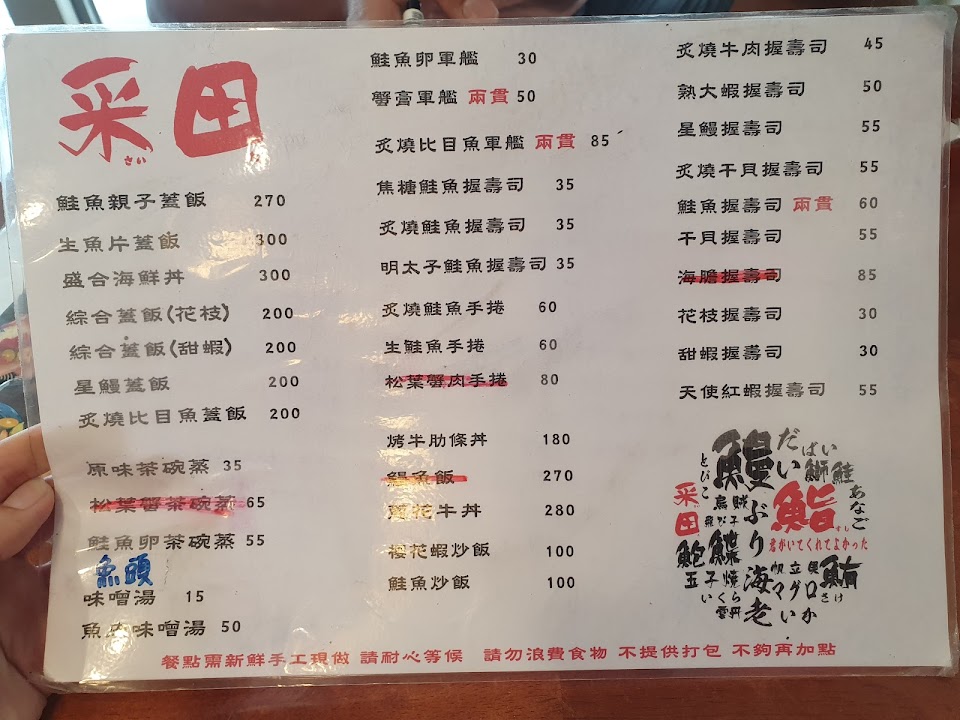 采田
さい
鮭魚親子蓋飯 270
生魚片蓋飯 300
盛合海鮮丼 300
綜合蓋飯(花枝) 200
綜合蓋飯(甜蝦) 200
星鰻蓋飯 200
炙燒比目魚蓋飯 200
原味茶碗蒸 35
松葉蟹茶碗蒸 65
鮭魚卵茶碗蒸 55
魚頭
味噌湯 15
魚肉味噌湯 50
鮭魚卵軍艦 30
蟹膏軍艦 兩貫 50
炙燒比目魚軍艦 兩貫 85
焦糖鮭魚握壽司 35
炙燒鮭魚握壽司 35
明太子鮭魚握壽司 35
炙燒鮭魚手捲 60
生鮭魚手捲 60
松葉蟹肉手捲 80
烤牛肋條丼 180
鯛魚飯 270
蔥花牛丼 280
櫻花蝦炒飯 100
鮭魚炒飯 100
炙燒牛肉握壽司 45
熟大蝦握壽司 50
星鰻握壽司 55
炙燒干貝握壽司 55
鮭魚握壽司 兩貫 60
干貝握壽司 55
海膽握壽司 85
花枝握壽司 30
甜蝦握壽司 30
天使紅蝦握壽司 55
鰻 だい ぶり 海老
とびこ
采田
ばい
鰤 鮭
あなご
鮨
すし
君がいてくれてよかった
鮪
餐點需新鮮手工現做 請耐心等候 請勿浪費食物 不提供打包 不夠再加點